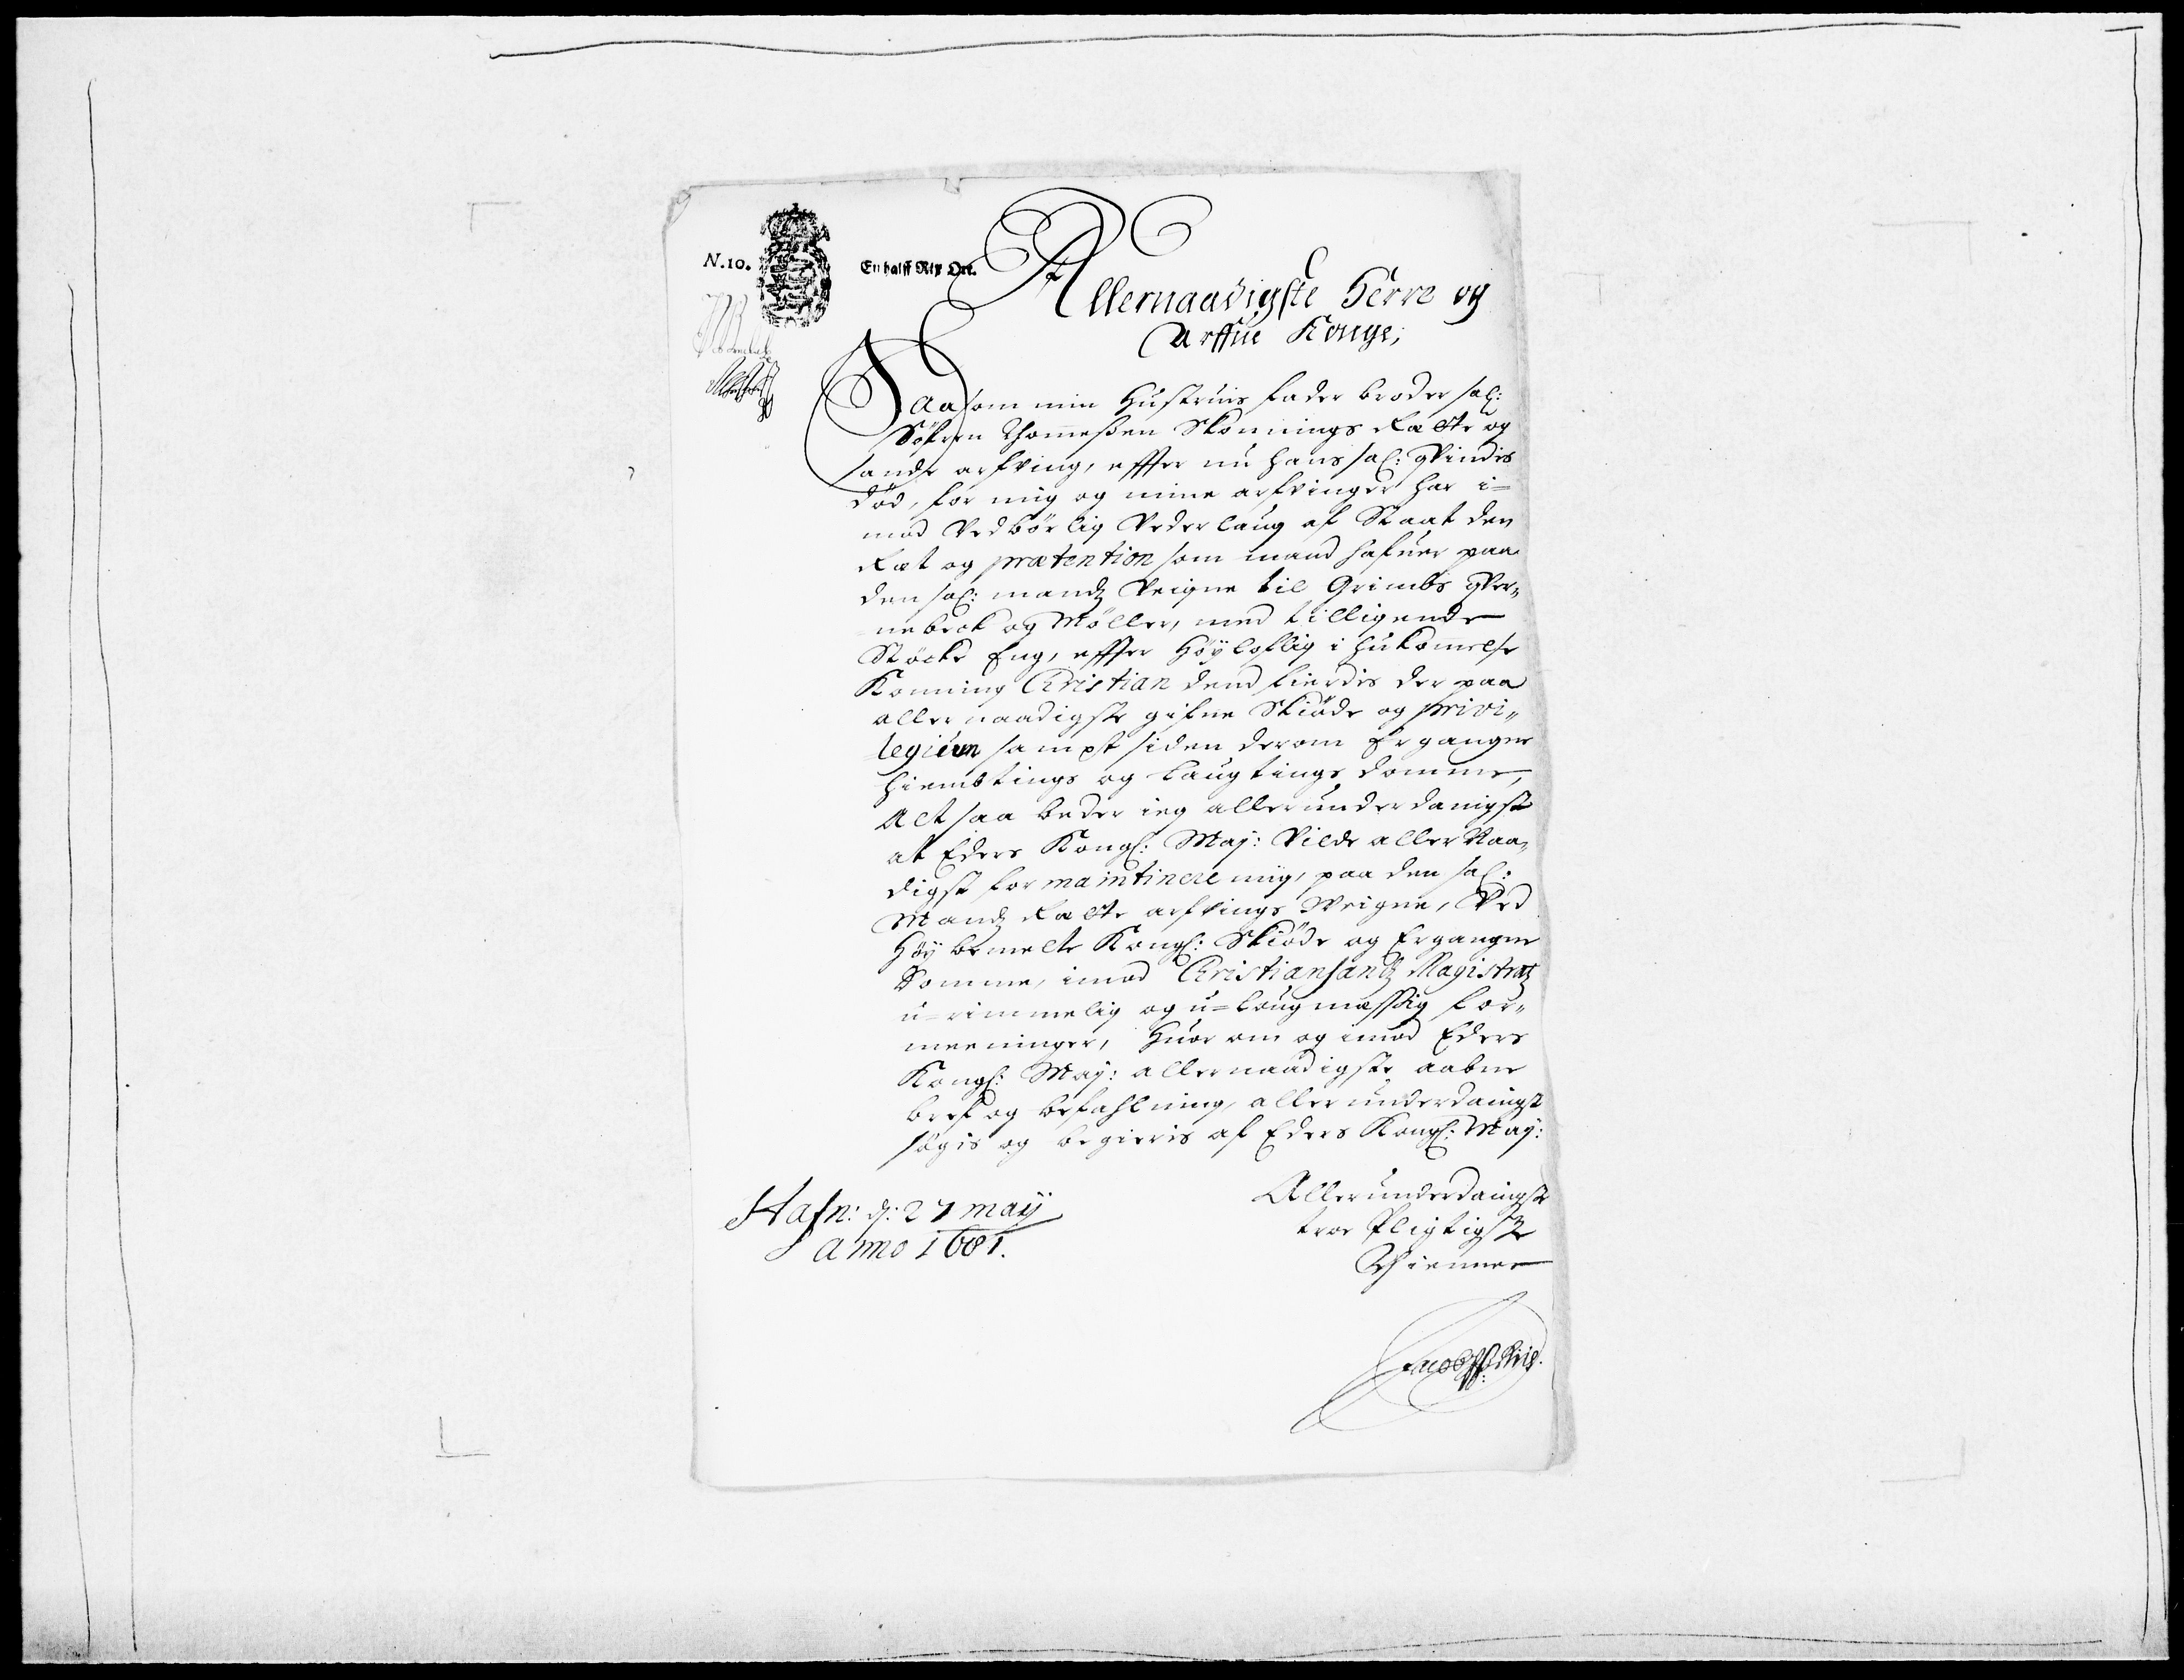 N. 10.
En halff Rix Ort.
Allernaadigste Herre og
Arffue Konge,
Saasom min Hustruis fader broder sal:
Sören Thommeßen Skonnings Rætte og
sande arfving, effter nu hans sal: qvindis
død, for mig og mine arfvinger har i=
mod Vedbørlig Vederlaug af Staat den
Ræt og prætention som mand hafuer paa
den sal: mandz Veigne til Grimbs qver„
nebeck og Møller, med tilligende
Støcke Eng, effter Høyloflig i hukommelse
Konning Christian dend fierdis der paa
aller naadigste gifne Skiøde og privi„
legium sampt siden derom Ergangne
hiembtings og laugtings domme,
Alt saa beder ieg allerunderdanigst
at Eders Kongl: May: Vilde aller Naa„
digst for maintinere mig, paa den sal:
Mandz Rætte arfvings Veigne, Ved
Høy bemelte Kongl: Skiøde og Ergangne
Domme, imod Christiansandz Magistratz
u=rimmelig og u=lougmæssig for„
meeninger, Huor om og imod Eders
Kongl: May: allernaadigste aabne
bref og befahlning, aller underdanigst
søgis og begieris af Eders Kongl: May:
Allerunderdanigste
troe Pligtigste
Thienner
Hafn: d: 27 maij
anno 1681.